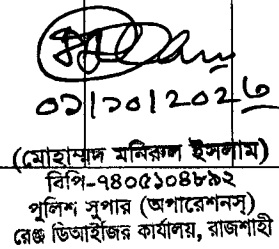 ০১।১০।২০২৬
(মোহাম্মদ মনিরুল ইসলাম)
বিপি-৭৪০৫১০৪৮৯২
পুলিশ সুপার (অপারেশনস্)
রেঞ্জ ডিআইজির কার্যালয়, রাজশাহী